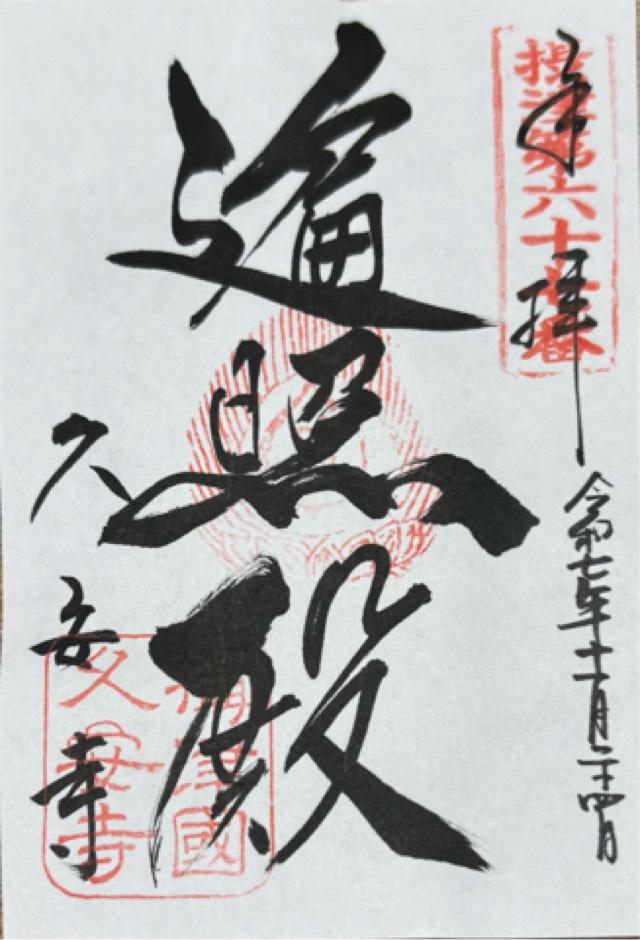 奉拝
摂津第六十番
令和七年十一月二十四日
遍照殿
久安寺
摂津國
久安寺